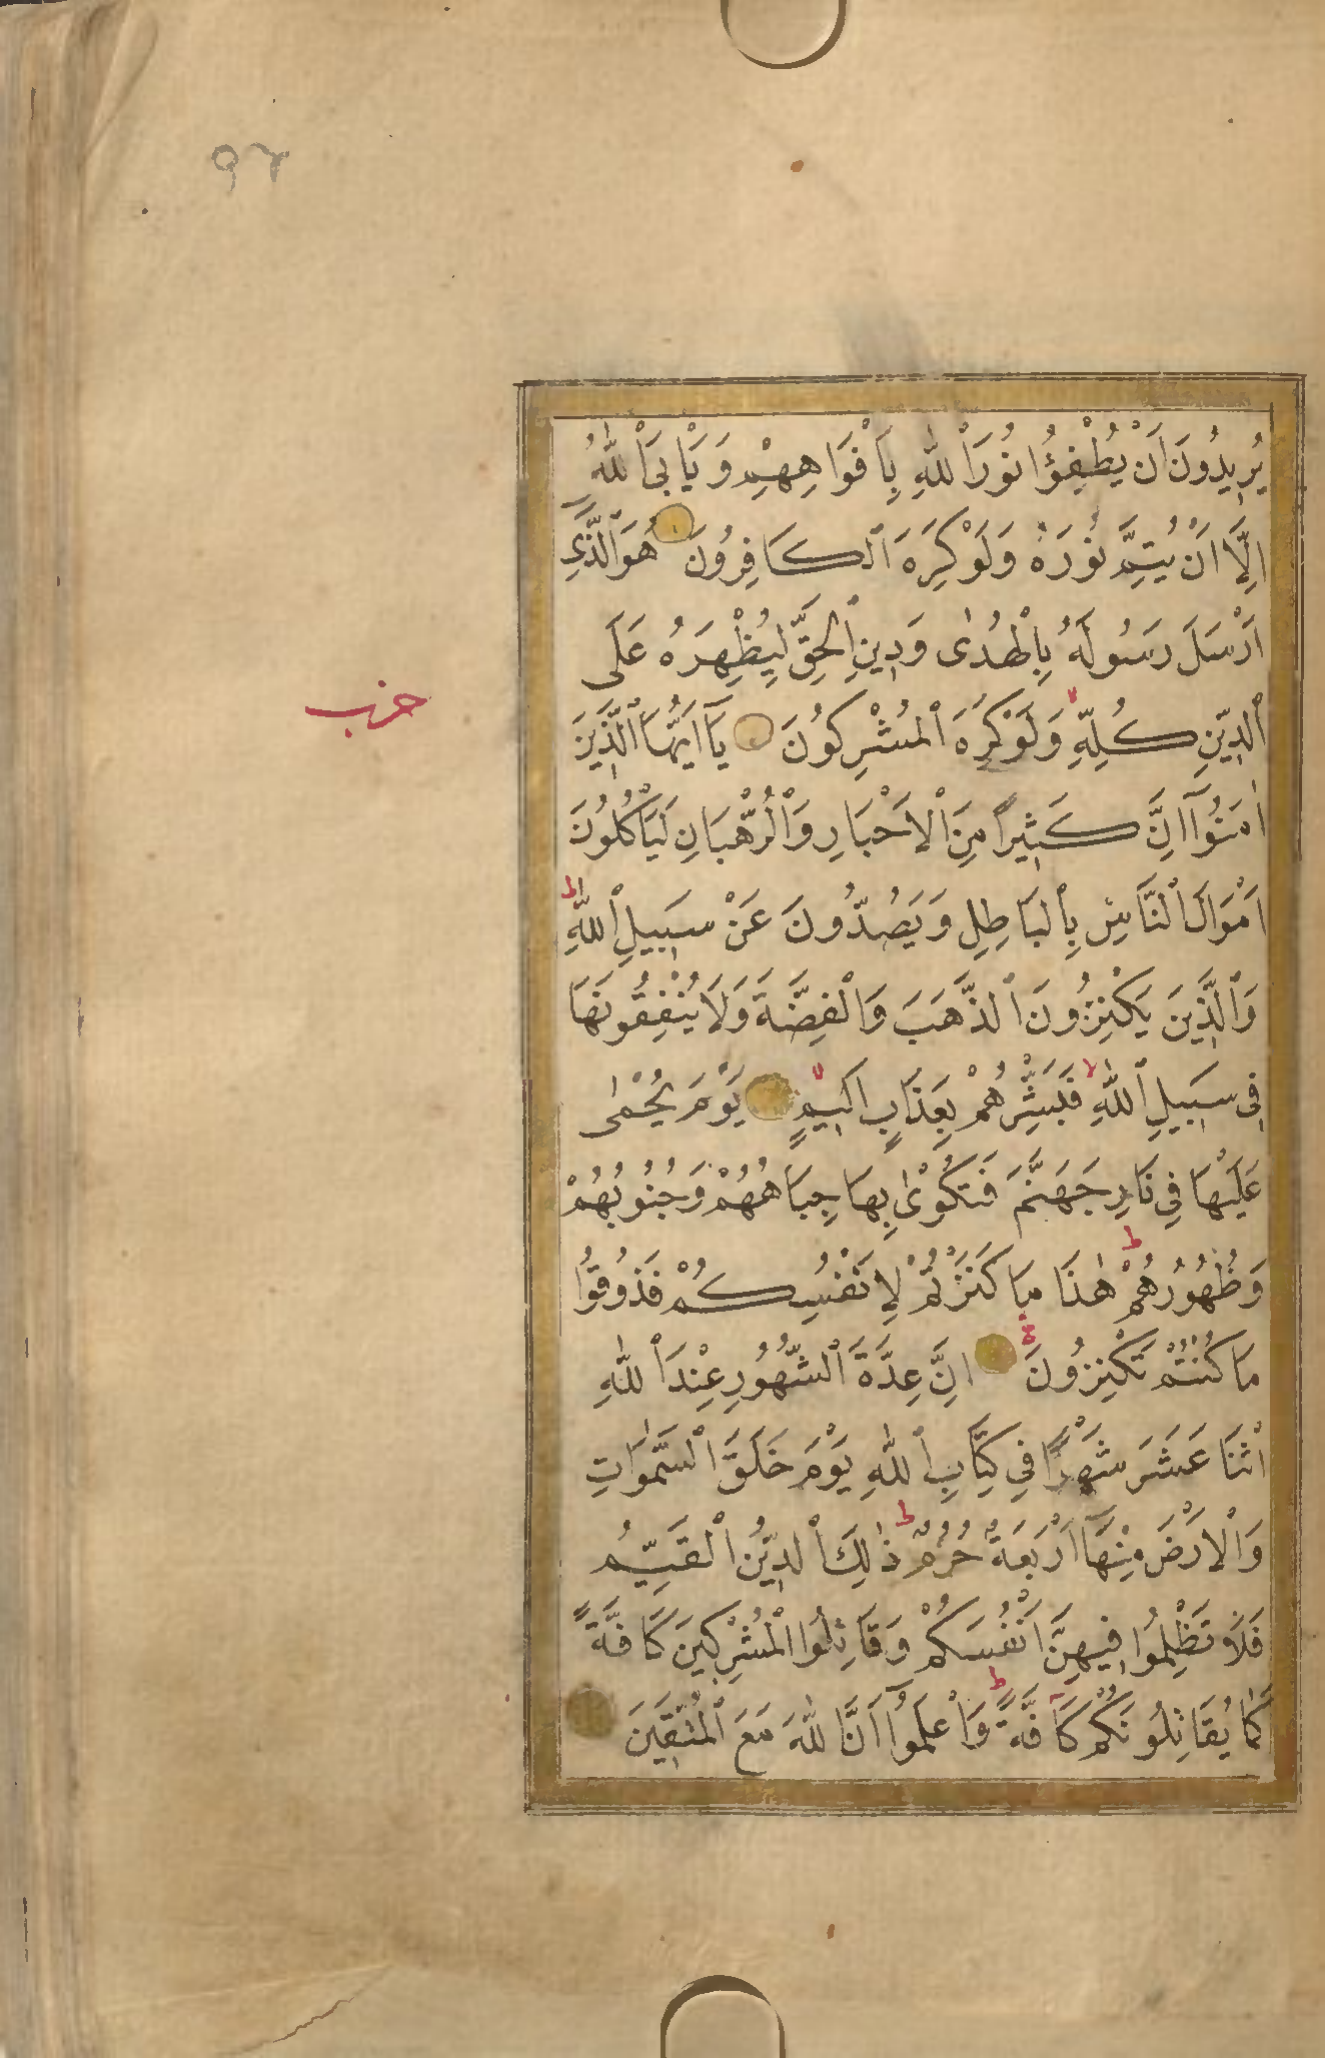 ٩٢
يُرِيدُونَ اَنْ يُطْفِؤُا نُورَ ٱللّٰهِ بِاَفْوَاهِهِمْ وَيَأْبَى ٱللّٰهُ
اِلَّٓا اَنْ يُتِمَّ نُورَهُ وَلَوْ كَرِهَ ٱلْكَافِرُونَ هُوَ ٱلَّذِٓى
اَرْسَلَ رَسُولَهُ بِالْهُدٰى وَدِينِ ٱلْحَقِّ لِيُظْهِرَهُ عَلَى
ٱلدِّينِ كُلِّهِ ۙ وَلَوْ كَرِهَ ٱلْمُشْرِكُونَ يَٓا اَيُّهَا ٱلَّذِينَ
اٰمَنُوٓا اِنَّ كَثِيرًا مِنَ ٱلْاَحْبَارِ وَٱلرُّهْبَانِ لَيَأْكُلُونَ
اَمْوَالَ ٱلنَّاسِ بِٱلْبَاطِلِ وَيَصُدُّونَ عَنْ سَبِيلِ ٱللّٰهِ ط
وَٱلَّذِينَ يَكْنِزُونَ ٱلذَّهَبَ وَٱلْفِضَّةَ وَلَا يُنْفِقُونَهَا
فِى سَبِيلِ ٱللّٰهِ ۙ فَبَشِّرْهُمْ بِعَذَابٍ اَلِيمٍ ۙ يَوْمَ يُحْمٰى
عَلَيْهَا فِى نَارِ جَهَنَّمَ فَتُكْوٰى بِهَا جِبَاهُهُمْ وَجُنُوبُهُمْ
وَظُهُورُهُمْ ط هٰذَا مَا كَنَزْتُمْ لِاَنْفُسِكُمْ فَذُوقُوا
مَا كُنْتُمْ تَكْنِزُونَ اِنَّ عِدَّةَ ٱلشُّهُورِ عِنْدَ ٱللّٰهِ
ٱثْنَا عَشَرَ شَهْرًا فِى كِتَابِ ٱللّٰهِ يَوْمَ خَلَقَ ٱلسَّمٰوَاتِ
وَٱلْاَرْضَ مِنْهَٓا اَرْبَعَةٌ حُرُمٌ ط ذٰلِكَ ٱلدِّينُ ٱلْقَيِّمُ
فَلَا تَظْلِمُوا فِيهِنَّ اَنْفُسَكُمْ وَقَاتِلُوا ٱلْمُشْرِكِينَ كَٓافَّةً
كَمَا يُقَاتِلُونَكُمْ كَٓافَّةً ط وَٱعْلَمُوٓا اَنَّ ٱللّٰهَ مَعَ ٱلْمُتَّقِينَ
حزب